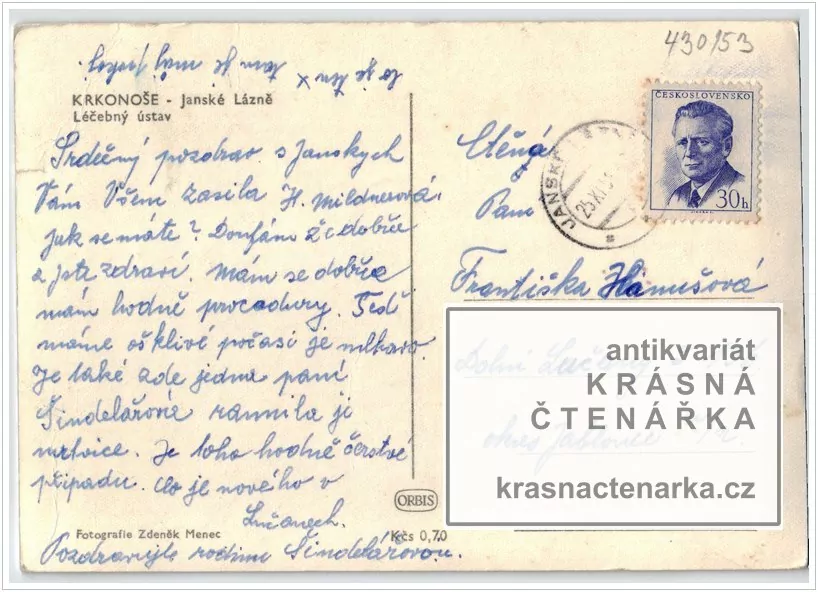 430/53
KRKONOŠE - Janské Lázně
Léčebný ústav
Srdečný pozdrav s Janskych
Vám Všem zasila H. Mildnerová.
Jak se máte? Doufám že dobře
a jste zdraví. Mám se dobře
mám hodně procadury. Teď
máme ošklivé počasí je mlhavo.
Je také zde jedna paní
Šindelářová rannila ji
mrtvice. Je toho hodně čerstvé
připadu. Co je nového v
Lučanech.
Pozdravujte rodinu Šindelářovou.
Fotografie Zdeněk Menec
ORBIS
Kčs 0,70
ČESKOSLOVENSKO
30h
JÁNSKÉ
25.XI.
Ctěná
Paní
Františka Hanušová
Dolní Lučany
okres Jablonec
antikvariát
KRÁSNÁ
ČTENÁŘKA
krasnactenarka.cz